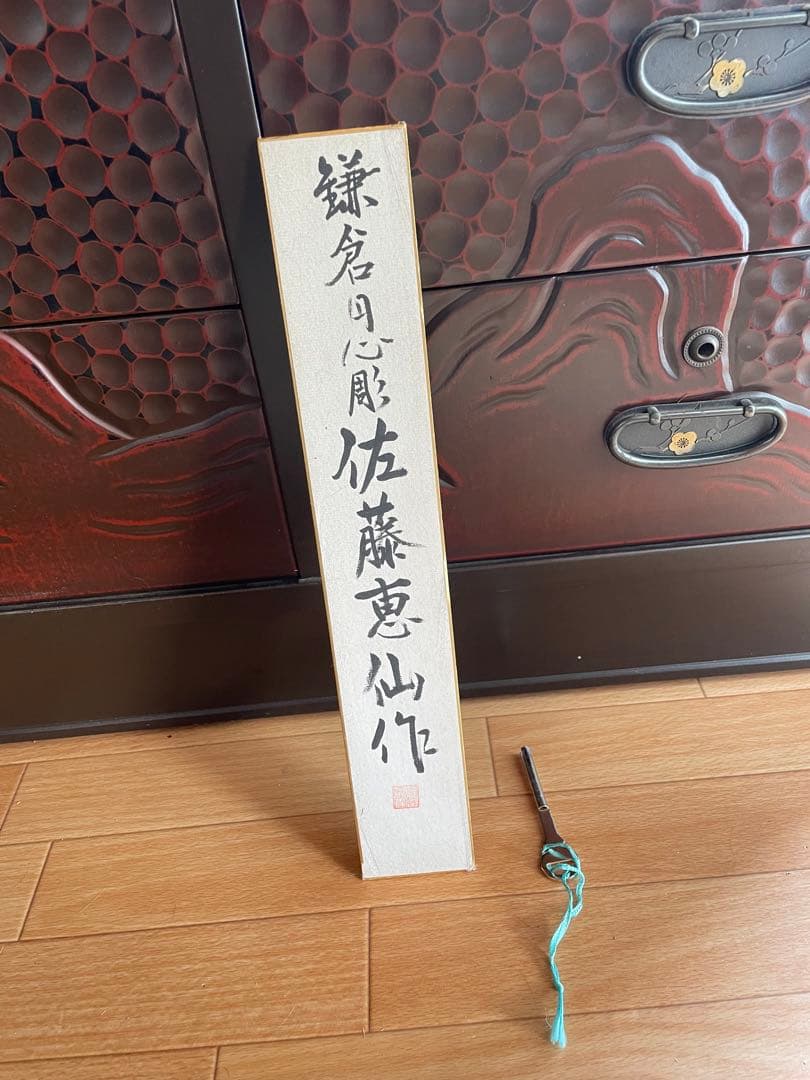 鎌倉円心彫佐藤恵仙作